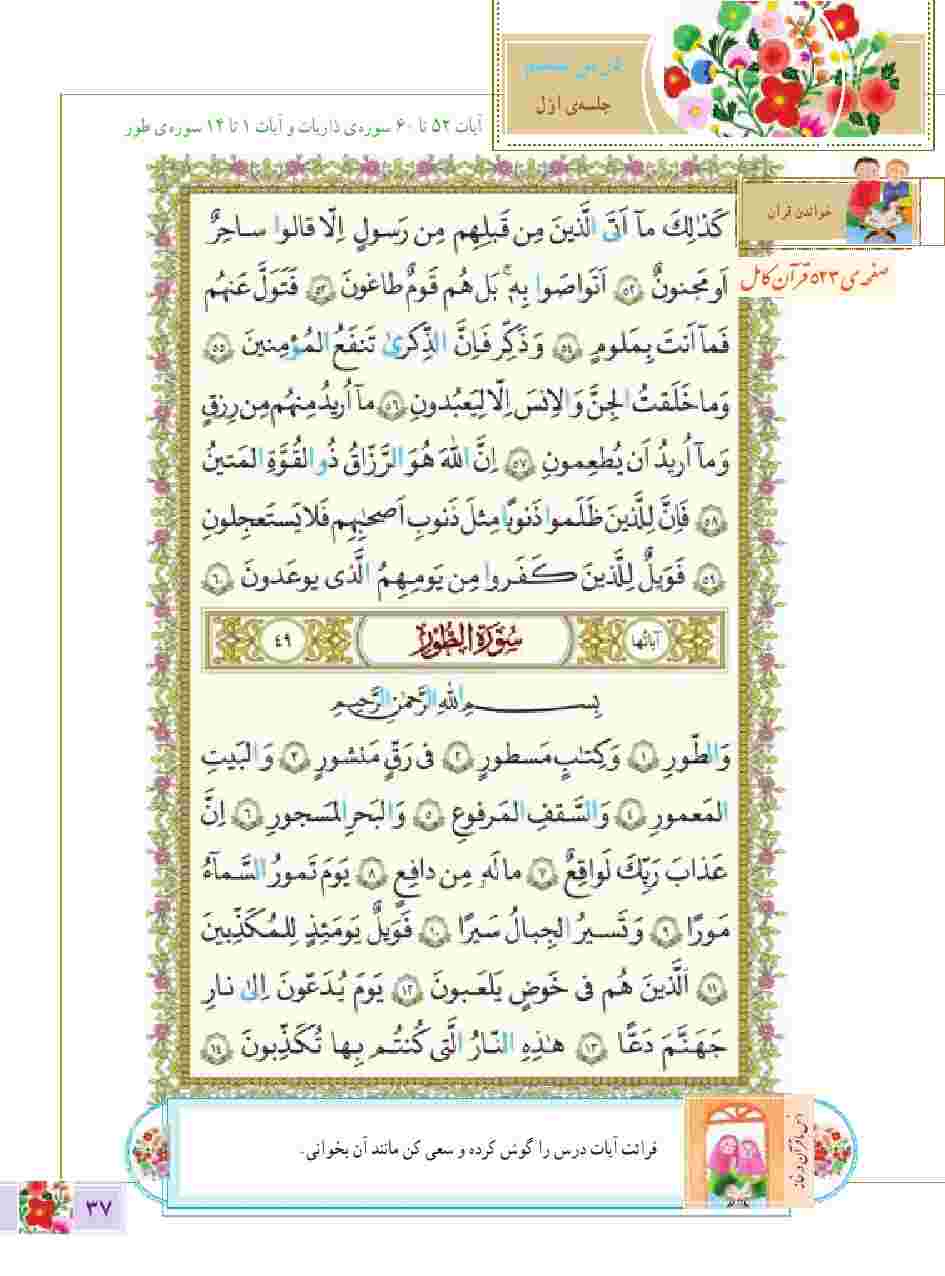 جلسه‌ی اوّل
آیات ۵۲ تا ۶۰ سوره‌ی ذاریات و آیات ۱ تا ۱۴ سوره‌ی طور
خواندن قرآن
صفحه‌ی ۵۲۳ قرآن کامل
كَذٰلِكَ مآ اَتَى الَّذينَ مِن قَبلِهِم مِن رَسولٍ اِلّا قالوا ساحِرٌ
اَو مَجنونٌ ٥٢ اَتَواصَوا بِهٖ ۚ بَل هُم قَومٌ طاغونَ ٥٣ فَتَوَلَّ عَنهُم
فَمآ اَنتَ بِمَلومٍ ٥٤ وَ ذَكِّر فَاِنَّ الذِّكرىٰ تَنفَعُ المُؤمِنينَ ٥٥
وَ ما خَلَقتُ الجِنَّ وَ الاِنسَ اِلّا لِيَعبُدونِ ٥٦ مآ اُريدُ مِنهُم مِن رِزقٍ
وَ مآ اُريدُ اَن يُطعِمونِ ٥٧ اِنَّ اللّٰهَ هُوَ الرَّزّاقُ ذُو القُوَّةِ المَتينُ
٥٨ فَاِنَّ لِلَّذينَ ظَلَموا ذَنوبًا مِثلَ ذَنوبِ اَصحٰبِهِم فَلا يَستَعجِلونِ
٥٩ فَوَيلٌ لِلَّذينَ كَفَروا مِن يَومِهِمُ الَّذى يوعَدونَ ٦٠
آياتُها سُورَةُ الطُّورِ ٤٩
بِسمِ اللّٰهِ الرَّحمٰنِ الرَّحيمِ
وَ الطّورِ ١ وَ كِتابٍ مَسطورٍ ٢ فى رَقٍّ مَنشورٍ ٣ وَ البَيتِ
المَعمورِ ٤ وَ السَّقفِ المَرفوعِ ٥ وَ البَحرِ المَسجورِ ٦ اِنَّ
عَذابَ رَبِّكَ لَواقِعٌ ٧ ما لَهٗ مِن دافِعٍ ٨ يَومَ تَمورُ السَّمآءُ
مَورًا ٩ وَ تَسيرُ الجِبالُ سَيرًا ١٠ فَوَيلٌ يَومَئِذٍ لِلمُكَذِّبينَ
١١ اَلَّذينَ هُم فى خَوضٍ يَلعَبونَ ١٢ يَومَ يُدَعّونَ اِلىٰ نارِ
جَهَنَّمَ دَعًّا ١٣ هٰذِهِ النّارُ الَّتى كُنتُم بِها تُكَذِّبونَ ١٤
انس با قرآن در خانه
قرائت آیات درس را گوش کرده و سعی کن مانند آن بخوانی.
۳۷